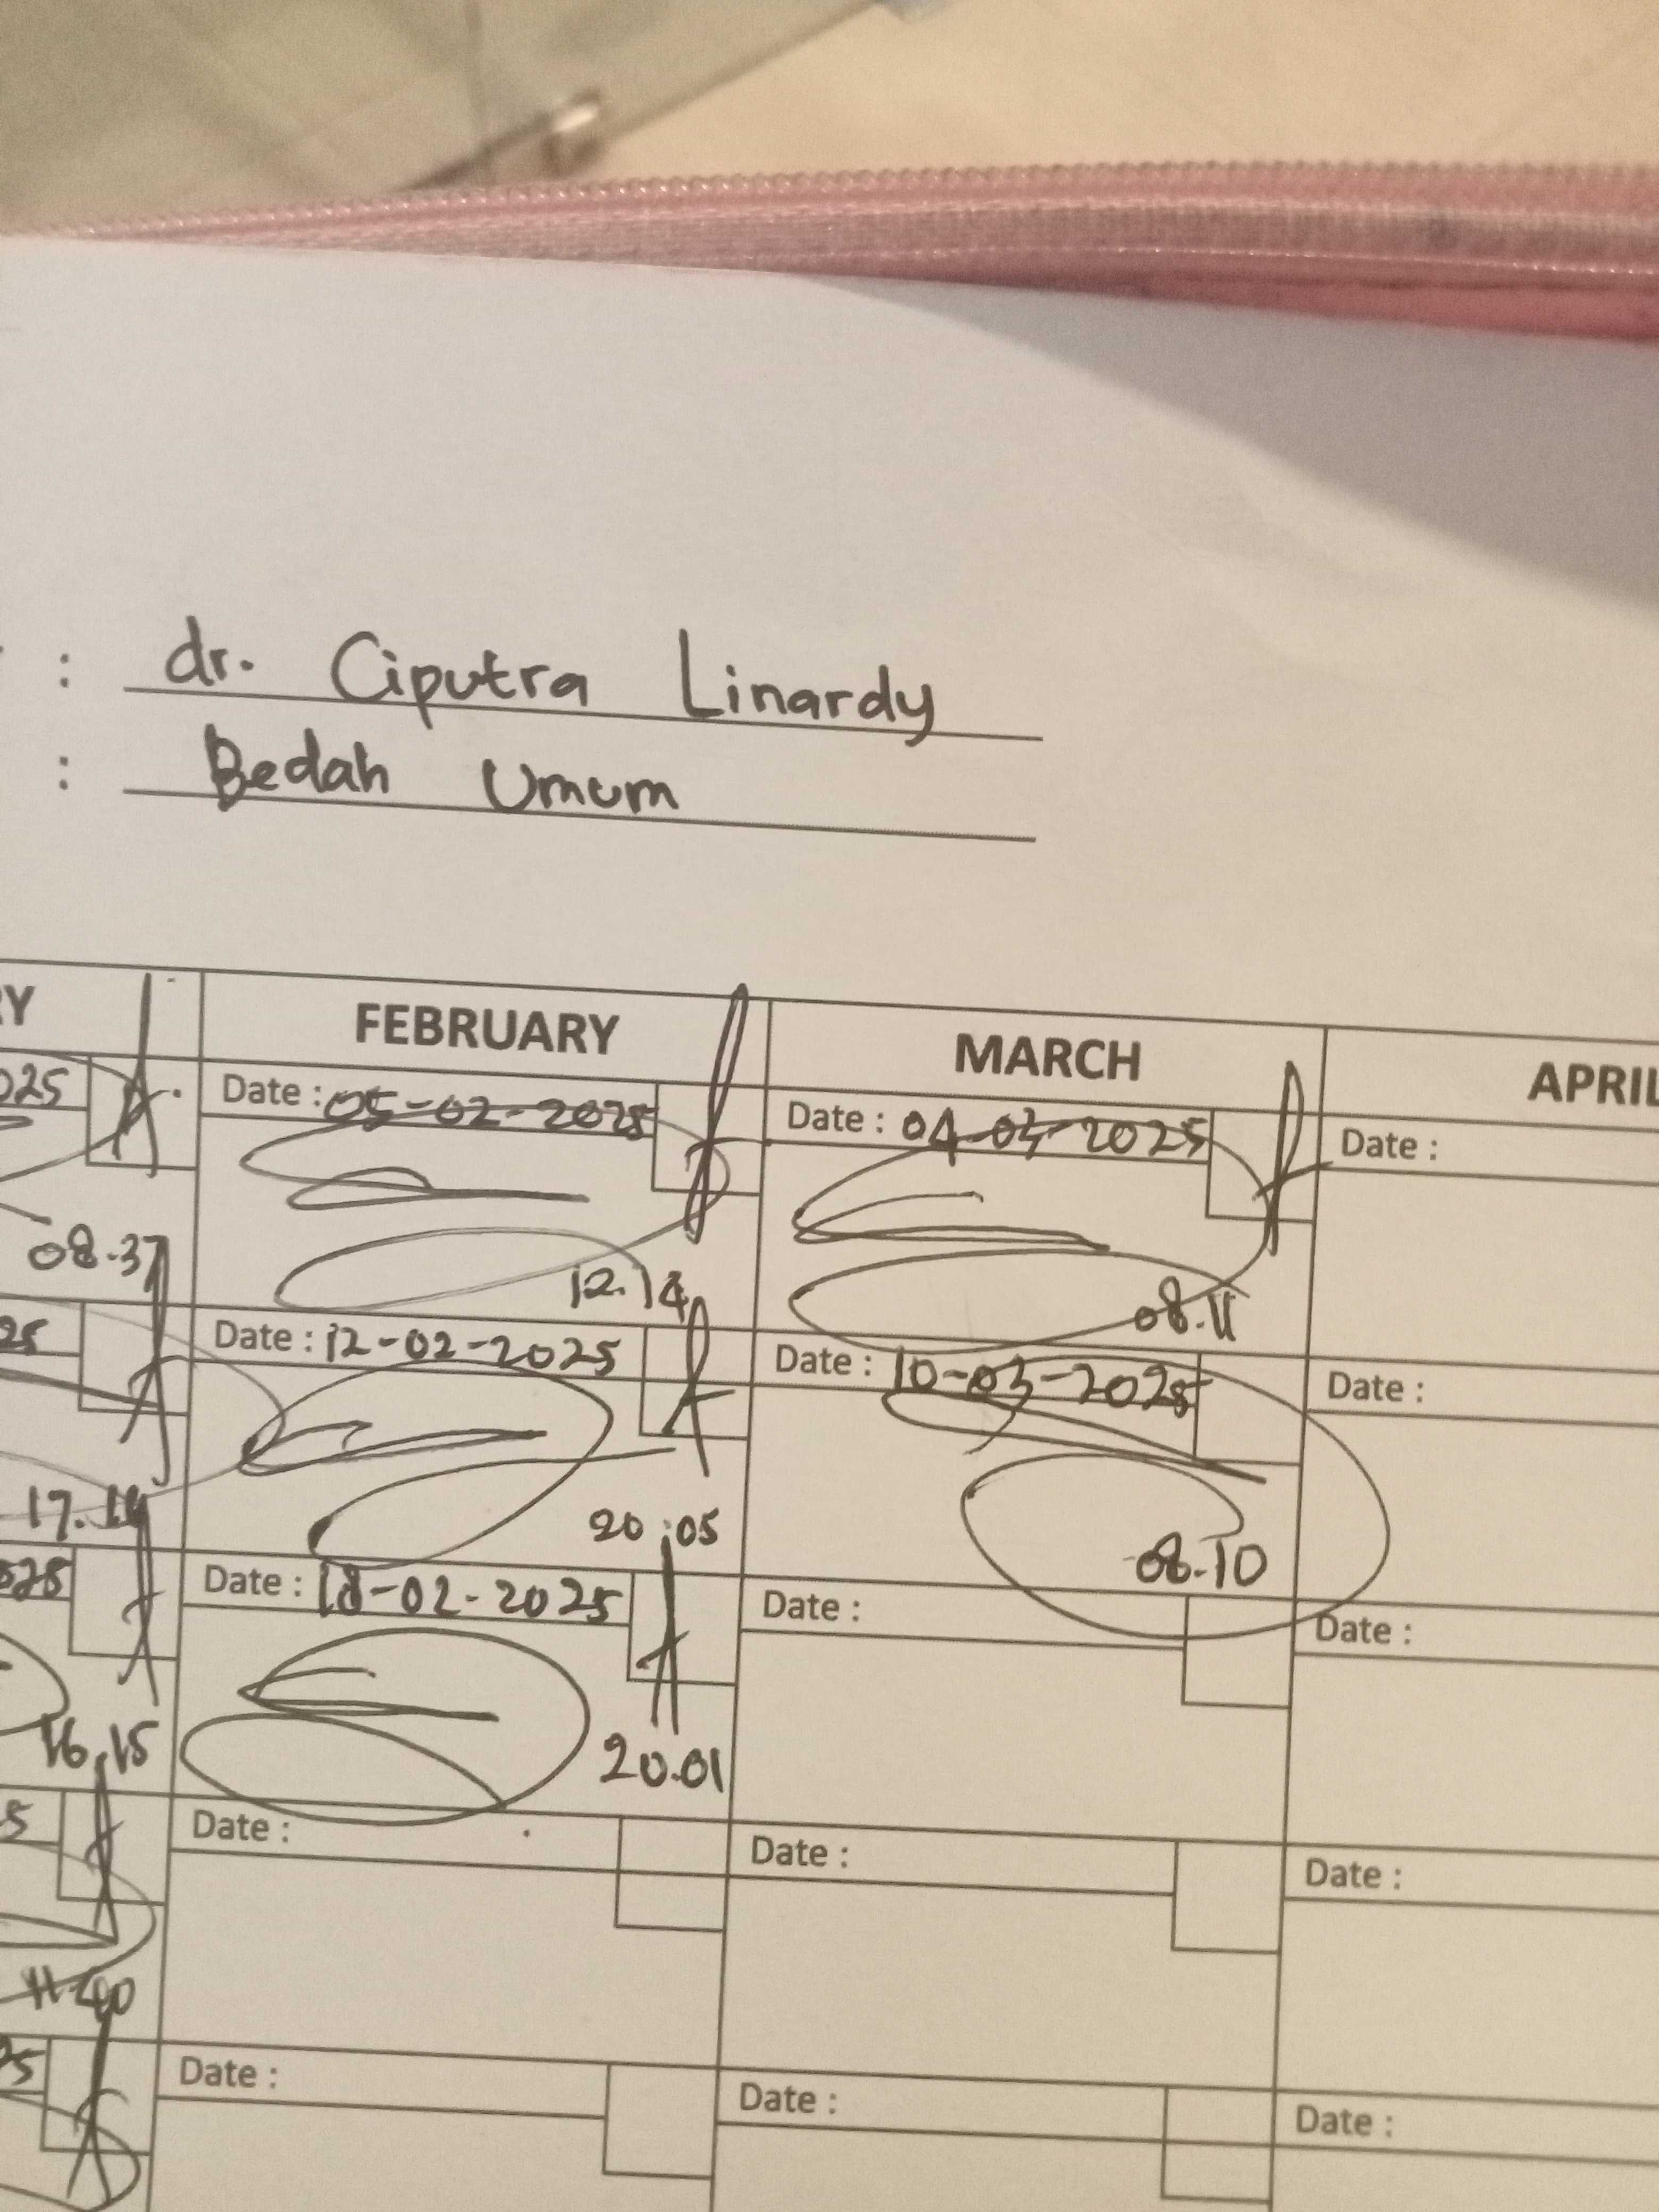 : dr. Ciputra Linardy
: Bedah Umum
FEBRUARY MARCH APRIL
025 Date : 05-02-2025 Date : 04-03-2025 Date :
08.37 12.14 08.11
25 Date : 12-02-2025 Date : 10-03-2025 Date :
17.14 20.05 08.10
025 Date : 18-02-2025 Date : Date :
16.15 20.01
5 Date : Date : Date :
11.40
25 Date : Date : Date :